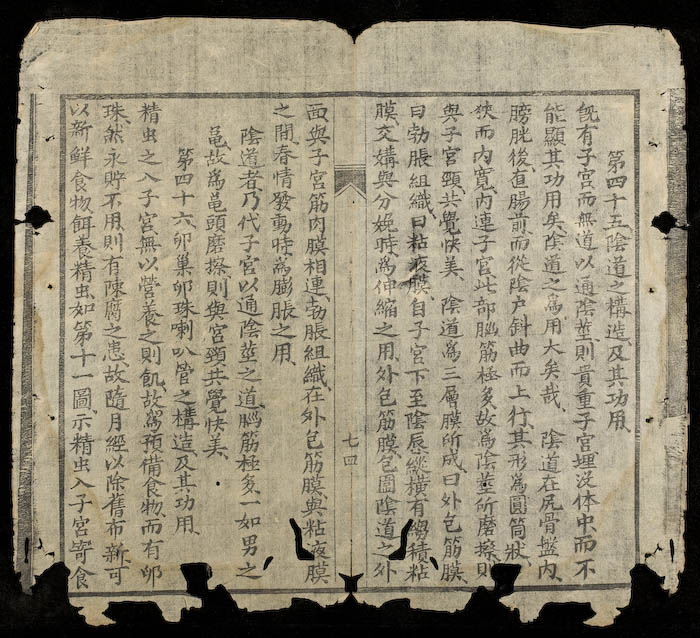 第四十五、陰道之構造、及其功用、
既有子宮、而無道以通陰莖、則貴重子宮、埋没体中、而不
能顯其功用矣、陰道之爲用大矣哉、　陰道在尻骨盤内、
膀胱後、直腸前、而從陰户斜曲而上行、其形爲圓筒狀、
狹而内寬、内連子宮、此部腦筋極多、故爲陰莖所磨擦、則
與子宮頸、共覺快美、　陰道爲三層膜所成、曰外包筋膜、
曰勃脹組織、曰粘液膜、自子宮下至陰唇、縱横有縐積、粘
膜、交媾與分娩時、爲伸縮之用、外包筋膜、包圍陰道之外
面、與子宮筋肉膜相連、勃脹組織、在外包筋膜、與粘液膜
之間、春情發動時、爲膨脹之用、
陰道者、乃代子宮以通陰莖之道、腦筋極多、一如男之
龟、故爲龟頭磨擦、則與宮頸共覺快美、
第四十六、卵巢、卵珠、喇叭管之構造、及其功用、
精虫之入子宮、無以營養之則飢、故爲預備食物、而有卵
珠、然永貯不用、則有陳腐之患、故隨月經以除舊布新、可
以新鮮食物餌養精虫、如第十一圖、示精虫入子宮寄食
七四